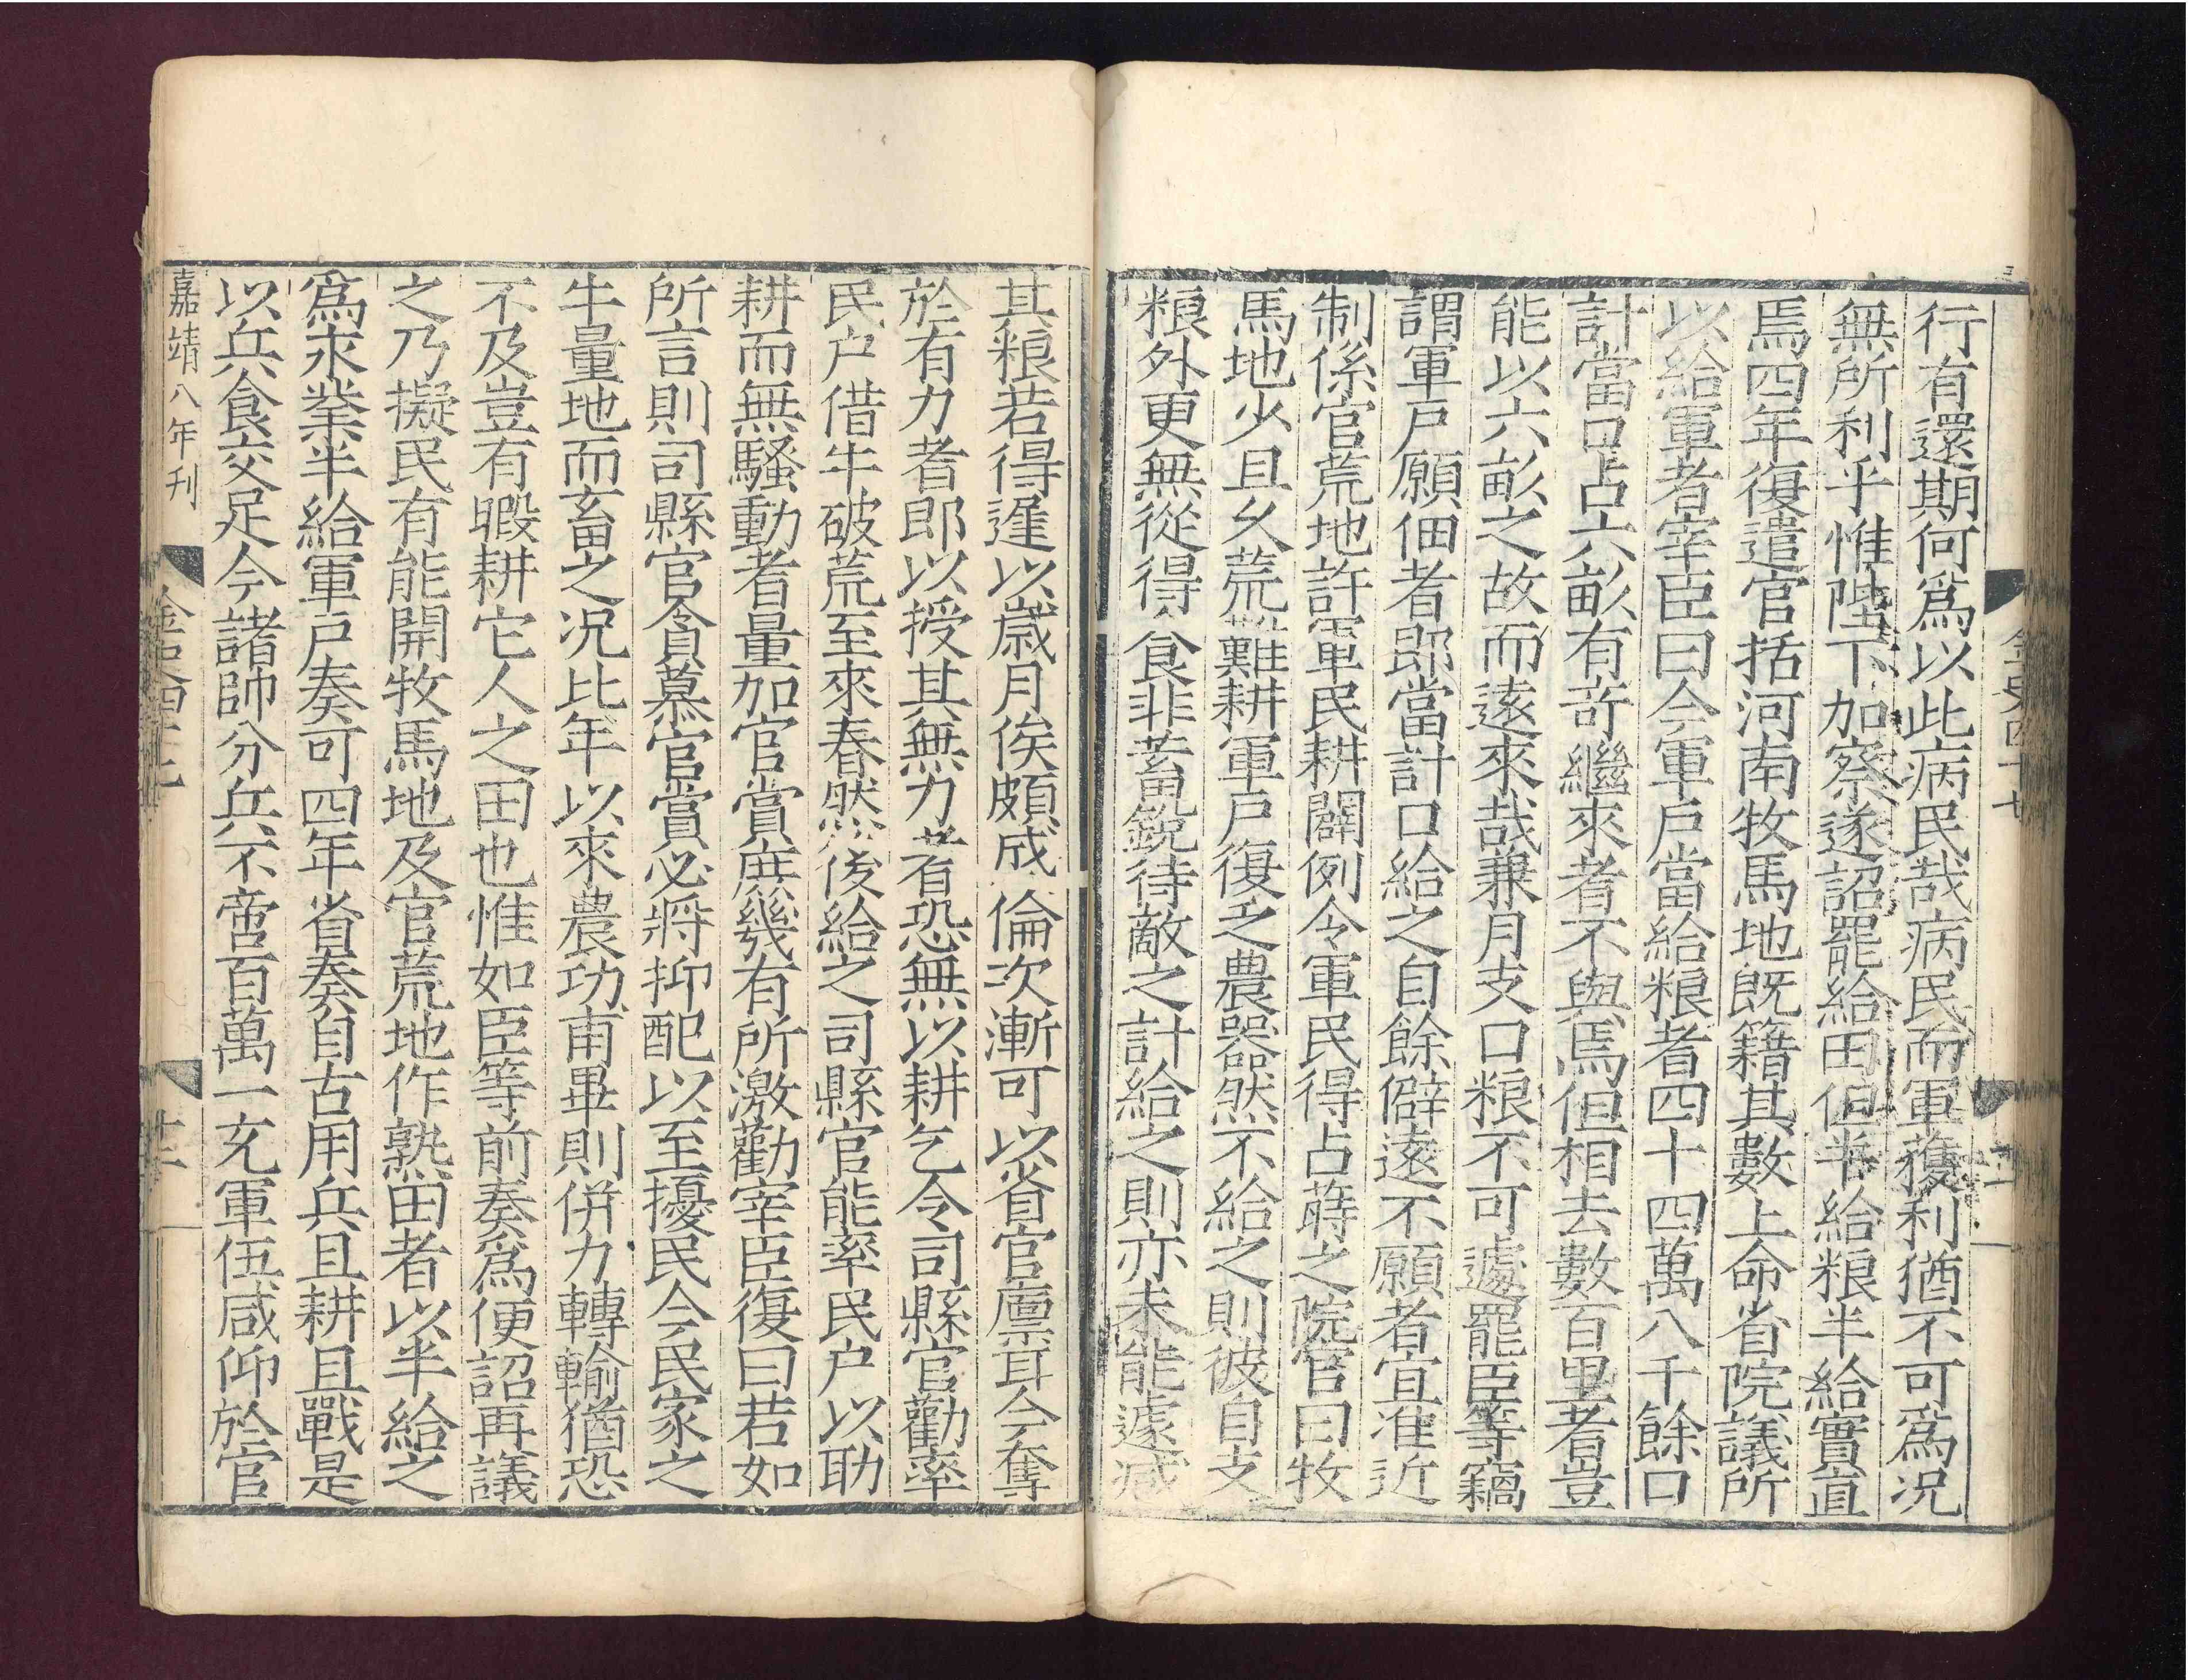 行有還期何爲以此病民哉病民而軍獲利猶不可爲况
無所利乎惟陛下加察遂詔罷給田但半給粮半給實直
焉四年復遣官括河南牧馬地既籍其數上命省院議所
以給軍者宰臣曰今軍戸當給粮者四十四萬八千餘口
計當口占六畝有奇繼來者不與焉但相去數百里者豈
能以六畝之故而遠來哉兼月支口粮不可遽罷臣等竊
謂軍戸願佃者即當計口給之自餘僻遠不願者宜准近
制係官荒地許軍民耕闢例令軍民得占蒔之院官曰牧
馬地少且久荒難耕軍戸復乏農器然不給之則彼自支
粮外更無從得食非蓄銳待敵之計給之則亦未能遽减
其粮若得遲以歲月俟頗成倫次漸可以省官廩耳今奪
於有力者即以授其無力者恐無以耕乞令司縣官勸率
民户借牛破荒至來春然後給之司縣官能率民户以助
耕而無騷動者量加官賞庶幾有所激勸宰臣復曰若如
所言則司縣官貪慕官賞必將抑配以至擾民今民家之
牛量地而畜之况比年以來農功甫畢則併力轉輸猶恐
不及豈有暇耕它人之田也惟如臣等前奏爲便詔再議
之乃擬民有能開牧馬地及官荒地作熟田者以半給之
爲永業半給軍戸奏可四年省奏自古用兵且耕且戰是
以兵食交足今諸帥分兵不啻百萬一充軍伍咸仰於官
嘉靖八年刊